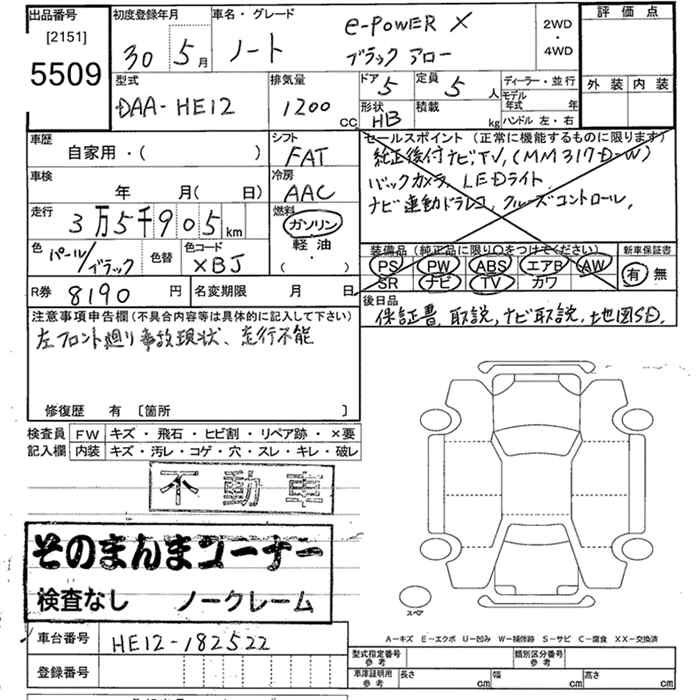 出品番号
[2151]
5509
初度登録年月
30年 5月
車名・グレード
ノート
e-POWER X
ブラックアロー
2WD
・
4WD
評価点
外装 内装
型式
DAA-HE12
排気量
1200 CC
ドア 5
形状 HB
定員 5 人
積載 kg
ディーラー・並行
モデル年式 年
ハンドル 左・右
車歴
自家用・( )
シフト
FAT
車検
年 月( 日)
冷房
AAC
走行
3万5千905 km
燃料
ガソリン
軽油・
( )
色
パール/ブラック
色替
色コード
XBJ
R券 8190 円
名変期限 月 日
セールスポイント (正常に機能するものに限ります)
純正後付ナビ,TV,(MM317D-W)
バックカメラ, LEDライト,
ナビ連動ドラレコ, クルーズコントロール,
装備品 (純正品に限り○をつけてください)
PS PW ABS エアB AW
SR ナビ TV カワ
新車保証書
有 無
後日品
保証書, 取説, ナビ取説, 地図SD,
注意事項申告欄(不具合内容等は具体的に記入して下さい)
左フロント廻り事故現状、走行不能
修復歴 有 [箇所 ]
検査員 FW キズ・飛石・ヒビ割・リペア跡・×要
記入欄 内装 キズ・汚レ・コゲ・穴・スレ・キレ・破レ
不動車
そのまんまコーナー
検査なし ノークレーム
スペア
A－キズ E－エクボ U－凹み W－補修跡 S－サビ C－腐食 XX－交換済
車台番号 HE12-182522
登録番号
型式指定番号
参考
類別区分番号
参考
車庫証明用
参考
長さ cm 幅 cm 高さ cm